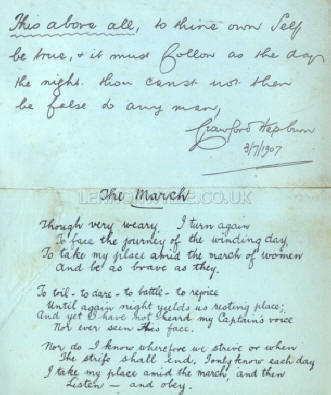 This above all, to thine own Self
be true, & it must follow as the day
the night. thou canst not then
be false to any man,
Crawford Hepburn
3/7/1907
The March
Though very weary, I turn again
To face the journey of the winding day,
To take my place amid the march of women
And be as brave as they.
To toil - to dare - to battle - to rejoice
Until again night yields us resting place;
And yet I have not heard my Captain's voice
Nor ever seen His face.
Nor do I know wherefore we strive or when
The strife shall end, I only know each day
I take my place amid the march, and then
Listen — and obey.